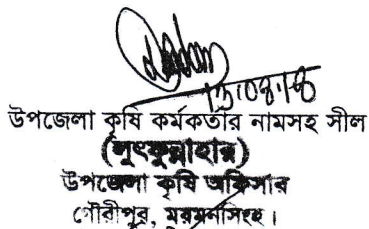 13.08.18
উপজেলা কৃষি কর্মকর্তার নামসহ সীল
(লুৎফুন্নাহার)
উপজেলা কৃষি অফিসার
গৌরীপুর, ময়মনসিংহ।